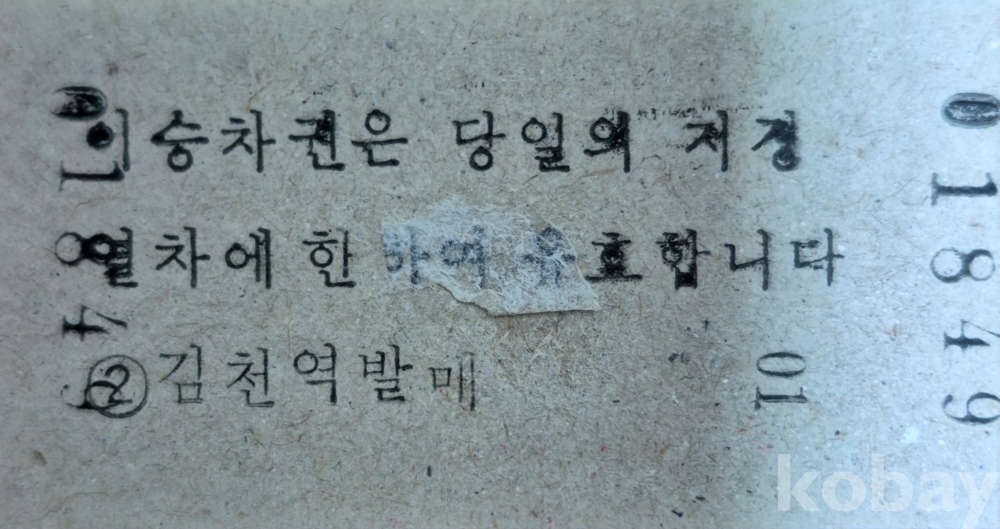 이 승차권은 당일의 저정
열차에 한 하여 유효합니다
②김천역발매
01
01849
01849
kobay